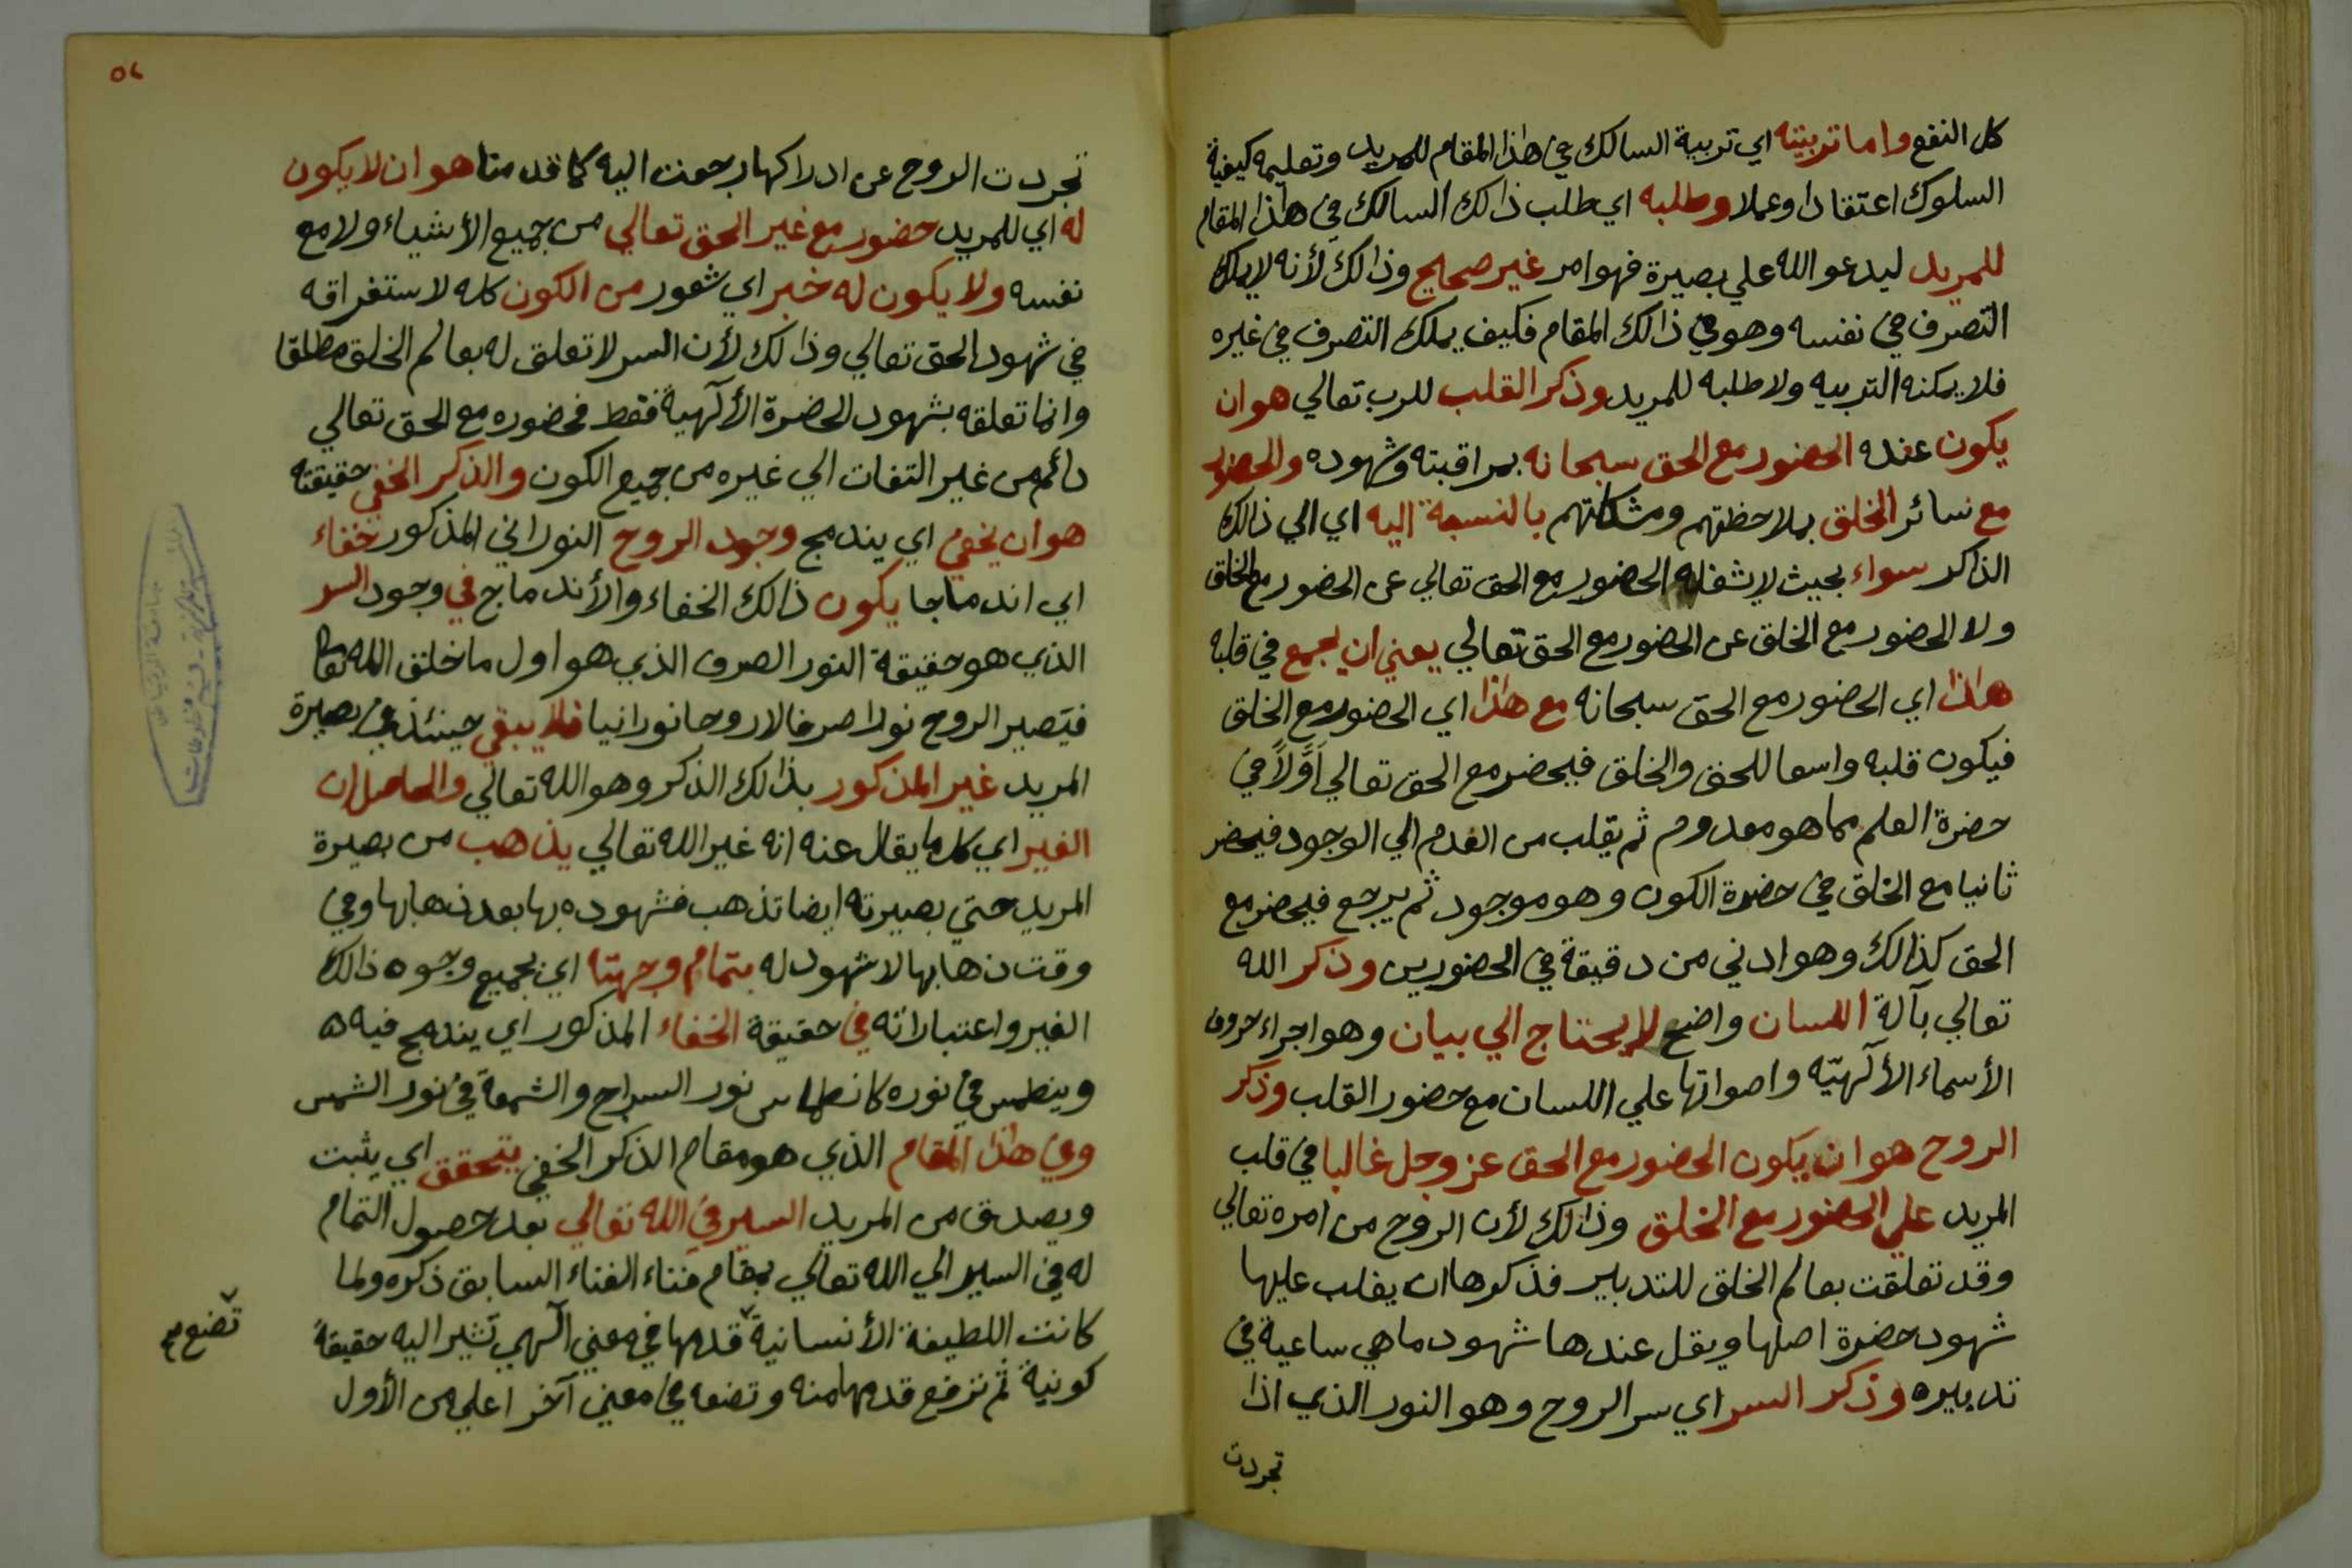 كل النفع واما تربيته اي تربية السالك في هذا المقام للمريد وتعليمه كيفية
السلوك اعتقادا وعملا وطلبه اي طلب ذالك السالك في هذا المقام
للمريد ليدعو الله علي بصيرة فهو امر غير صحيح وذالك لأنه لا يملك
التصرف في نفسه وهو في ذالك المقام فكيف يملك التصرف في غيره
فلا يمكنه التربيه ولا طلبه للمريد وذكر القلب للرب تعالي هو ان
يكون عنده الحضور مع الحق سبحانه بمراقبته وشهوده والحضور
مع سائر الخلق بملاحظتهم ومشكلتهم بالنسبة اليه اي الي ذالك
الذاكر سواء بحيث لا يشغله الحضور مع الحق تعالي عن الحضور مع الخلق
ولا الحضور مع الخلق عن الحضور مع الحق تعالي يعني ان يجمع في قلبه
هذا اي الحضور مع الحق سبحانه مع هذا اي الحضور مع الخلق
فيكون قلبه واسعا للحق والخلق فيحضر مع الحق تعالي اَوَّلاً في
حضرة العلم مما هو معدوم ثم يقلب من العدم الي الوجود فيحضر
ثانيا مع الخلق في حضرة الكون وهو موجود ثم يرجع فيحضر مع
الحق كذالك وهو ادني من دقيقة في الحضورين وذكر الله
تعالي بآلة اللسان واضح لا يحتاج الي بيان وهو اجراء حروف
الأسماء الألهيّه واصواتها علي اللسان مع حضور القلب وذكر
الروح هو ان يكون الحضور مع الحق عز وجل غالبا في قلب
المريد علي الحضور مع الخلق وذالك لأن الروح من امره تعالي
وقد تعلقت بعالم الخلق للتدبير فذكرها ان يغلب عليها
شهود حضرة اصلها ويقل عندها شهود ما هي ساعية في
تدبيره وذكر السر اي سر الروح وهو النور الذي اذا
تجردت
٥٢
تجردت الروح عن ادراكها رجعت اليه كما قدمنا هو ان لا يكون
له اي للمريد حضور مع غير الحق تعالي من جميع الأشياء ولا مع
نفسه ولا يكون له خبر اي شعور من الكون كله لاستغراقه
في شهود الحق تعالي وذالك لأن السر لا تعلق له بعالم الخلق مطلقا
وانما تعلقه بشهود الحضرة الألهية فقط فحضوره مع الحق تعالي
دائم من غير التفات الي غيره من جميع الكون والذكر الخفي حقيقته
هو ان يخفي اي يندمج وجود الروح النوراني المذكور خفاء
اي اندماجا يكون ذالك الخفاء والأندماج في وجود السر
الذي هو حقيقة النور الصرف الذي هو اول ما خلق الله تعالي
فيصير الروح نورا صرفا لا روحا نورانيا فلا يبقي حينئذ في بصيرة
المريد غير المذكور بذالك الذكر وهو الله تعالي والحاصل ان
الغير اي كل ما يقال عنه انه غير الله تعالي يذهب من بصيرة
المريد حتي بصيرته ايضا تذهب فشهوده بها بعد ذهابها وفي
وقت ذهابها لا شهود له بتمام وجهتا اي بجميع وجوه ذالك
الغير واعتباراته في حقيقة الخفاء المذكور اي يندمج فيه
وينطمس في نوره كانطماس نور السراج والشمعة في نور الشمس
وفي هذا المقام الذي هو مقام الذكر الخفي يتحقق اي يثبت
ويصدق من المريد السير في الله تعالي بعد حصول التمام
له في السير الي الله تعالي بمقام فناء الفناء السابق ذكره ولما
كانت اللطيفة الأنسانية قدمها في معني آلهي تشير اليه حقيقة
تضع صح
كونية ثم ترفع قدمها منه وتضعه في معني آخر اعلي من الأول